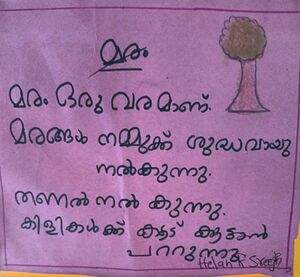 മരം
മരം ഒരു വരമാണ്.
മരങ്ങൾ നമ്മുക്ക് ശുദ്ധവായു
നൽകുന്നു.
തണൽ നൽ കുന്നു.
കിളികൾക്ക് കൂട് കൂടാൻ
പറ്റുന്നു.
Helan k Sreejith